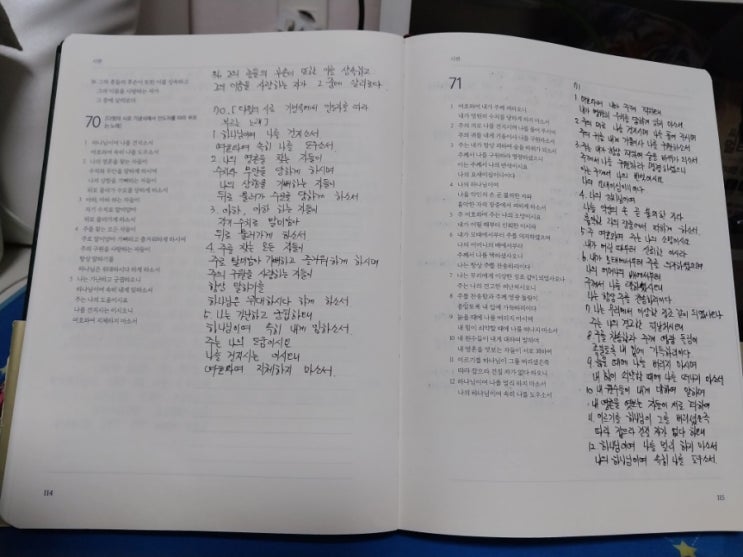 시편
36 그의 종들의 후손이 또한 이를 상속하고
그의 이름을 사랑하는 자가
그 중에 살리로다
70 [다윗의 시로 기념식에서 인도자를 따라 부르는 노래]
1 하나님이여 나를 건지소서
여호와여 속히 나를 도우소서
2 나의 영혼을 찾는 자들이
수치와 무안을 당하게 하시며
나의 상함을 기뻐하는 자들이
뒤로 물러가 수모를 당하게 하소서
3 아하, 아하 하는 자들이
자기 수치로 말미암아
뒤로 물러가게 하소서
4 주를 찾는 모든 자들이
주로 말미암아 기뻐하고 즐거워하게 하시며
주의 구원을 사랑하는 자들이
항상 말하기를
하나님은 위대하시다 하게 하소서
5 나는 가난하고 궁핍하오니
하나님이여 속히 내게 임하소서
주는 나의 도움이시요
나를 건지시는 이시오니
여호와여 지체하지 마소서
114
36. 그의 종들의 후손이 또한 이를 상속하고
그의 이름을 사랑하는 자가 그 중에 살리로다
70. [다윗의 시로 기념식에서 인도자를 따라
부르는 노래]
1 하나님이여 나를 건지소서
여호와여 속히 나를 도우소서
2. 나의 영혼을 찾는 자들이
수치와 무안을 당하게 하시며
나의 상함을 기뻐하는 자들이
뒤로 물러가 수모를 당하게 하소서
3. 아하, 아하 하는 자들이
자기 수치로 말미암아
뒤로 물러가게 하소서
4 주를 찾는 모든 자들이
주로 말미암아 기뻐하고 즐거워하게 하시며
주의 구원을 사랑하는 자들이
항상 말하기를
하나님은 위대하시다 하게 하소서
5. 나는 가난하고 궁핍하오니
하나님이여 속히 내게 임하소서
주는 나의 도움이시요
나를 건지시는 이시오니
여호와여 지체하지 마소서
시편
71
1 여호와여 내가 주께 피하오니
내가 영원히 수치를 당하게 하지 마소서
2 주의 의로 나를 건지시며 나를 풀어 주시며
주의 귀를 내게 기울이사 나를 구원하소서
3 주는 내가 항상 피하여 숨을 바위가 되소서
주께서 나를 구원하라 명령하셨으니
이는 주께서 나의 반석이시요
나의 요새이심이니이다
4 나의 하나님이여
나를 악인의 손 곧 불의한 자와
흉악한 자의 장중에서 피하게 하소서
5 주 여호와여 주는 나의 소망이시요
내가 어릴 때부터 신뢰한 이시라
6 내가 모태에서부터 주를 의지하였으며
나의 어머니의 배에서부터
주께서 나를 택하셨사오니
나는 항상 주를 찬송하리이다
7 나는 무리에게 이상한 징조 같이 되었사오나
주는 나의 견고한 피난처시오니
8 주를 찬송함과 주께 영광 돌림이
종일토록 내 입에 가득하리이다
9 늙을 때에 나를 버리지 마시며
내 힘이 쇠약할 때에 나를 떠나지 마소서
10 내 원수들이 내게 대하여 말하며
내 영혼을 엿보는 자들이 서로 꾀하여
11 이르기를 하나님이 그를 버리셨은즉
따라 잡으라 건질 자가 없다 하오니
12 하나님이여 나를 멀리 하지 마소서
나의 하나님이여 속히 나를 도우소서
115
71
1 여호와여 내가 주께 피하오니
내가 영원히 수치를 당하게 하지 마소서
2 주의 의로 나를 건지시며 나를 풀어 주시며
주의 귀를 내게 기울이사 나를 구원하소서
3 주는 내가 항상 피하여 숨을 바위가 되소서
주께서 나를 구원하라 명령하셨으니
이는 주께서 나의 반석이시요
나의 요새이심이니이다
4. 나의 하나님이여
나를 악인의 손 곧 불의한 자와
흉악한 자의 장중에서 피하게 하소서
5 주 여호와여 주는 나의 소망이시요
내가 어릴 때부터 신뢰한 이시라
6 내가 모태에서부터 주를 의지하였으며
나의 어머니의 배에서부터
주께서 나를 택하셨사오니
나는 항상 주를 찬송하리이다
7 나는 무리에게 이상한 징조 같이 되었사오나
주는 나의 견고한 피난처시오니
8 주를 찬송함과 주께 영광 돌림이
종일토록 내 입에 가득하리이다
9 늙을 때에 나를 버리지 마시며
내 힘이 쇠약할 때에 나를 떠나지 마소서
10 내 원수들이 내게 대하여 말하며
내 영혼을 엿보는 자들이 서로 꾀하여
11 이르기를 하나님이 그를 버리셨은즉
따라 잡으라 건질 자가 없다 하오니
12 하나님이여 나를 멀리 하지 마소서
나의 하나님이여 속히 나를 도우소서